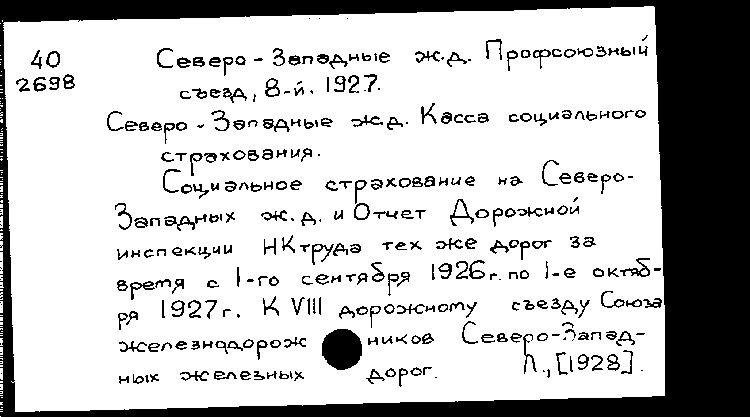 40 Северо-Западные ж.д. Профсоюзный
2698 съезд, 8-й. 1927.
Северо-Западные ж.д. Касса социального
страхования.
Социальное страхование на Северо-
Западных ж.д. и Отчет Дорожной
инспекции НКтруда тех же дорог за
время с 1-го сентября 1926г. по 1-е октяб-
ря 1927г. К VIII дорожному съезду Союза
железнодорожников Северо-Запад-
ных железных дорог. Л., [1928].